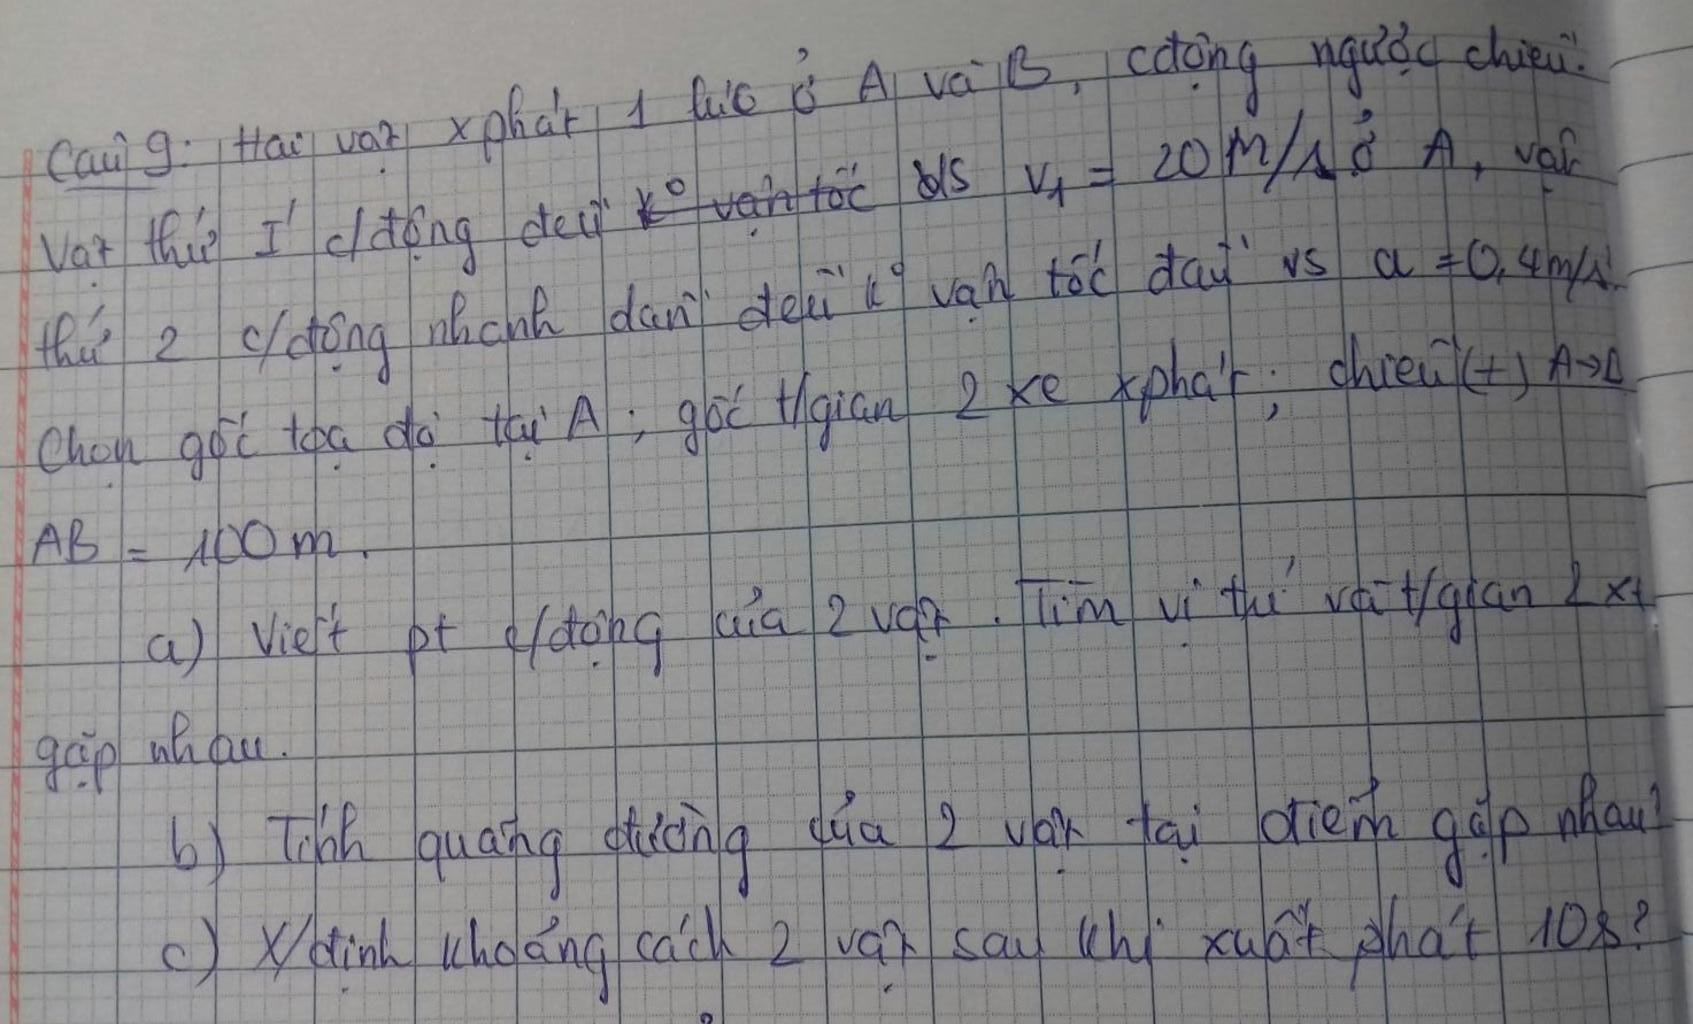 Câu 9: Hai vật xphát 1 lúc ở A và B, cđộng ngược chiều.
Vật thứ I c/động đều k⁰ vận tốc vs v₁ = 20 m/s ở A, vật
thứ 2 c/động nhanh dần đều k⁰ vận tốc đầu vs a = 0,4m/s².
Chọn gốc tọa độ tại A; gốc t/gian 2 xe xphát; chiều (+) A→B
AB = 100m.
a) Viết pt c/động của 2 vật. Tìm vị thí và t/gian 2 xe
gặp nhau.
b) Tính quãng đường của 2 vật tại điểm gặp nhau?
c) X/định khoảng cách 2 vật sau khi xuất phát 10s?